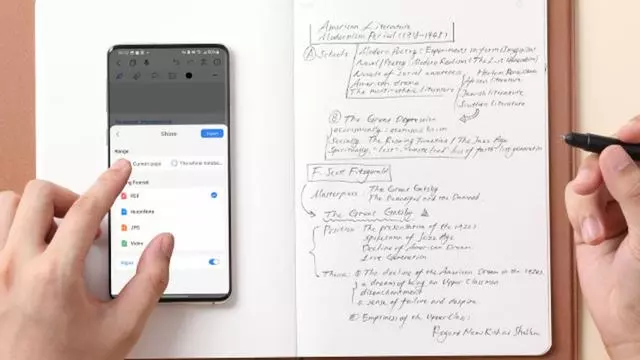 Share
Export
Range
Current page
The whole notebo...
PDF
HuionNote
JPG
Video
Pages
American Literature
Modernism Period (1918-1945)
A Schools
Modern Poetry: Experiments in form
Novel/Poetry: Modern Realism (The Lost Generation)
Novels of social awareness
Harlem Renaissance
American drama
African literature
The multi-ethnic literature
Jewish literature
Southern literature
B The Great Depression
economic
Socially: The Roaring Twenties / The Jazz Age
Spiritually: lost
loss of faith lost generation
F. Scott Fitzgerald
Masterpass: The Great Gatsby
The Beautiful and the Damned
The Great Gatsby
Position: The presentation of the 1920s
Spokesman of Jazz Age
Decline of American Dream
Love Generation
Theme: ① The decline of the American Dream in the 1920s
a dream of being an Upper Classman
disenchantment
a sense of failure and despair
② Emptiness of the Upper Class: